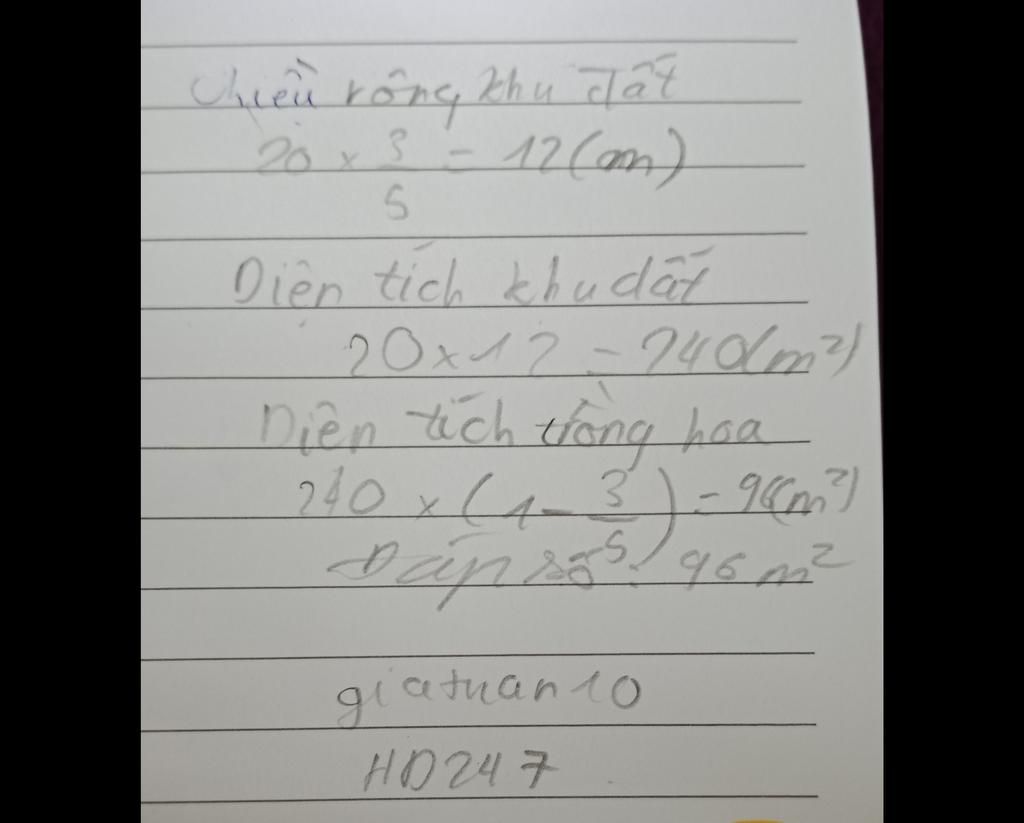 Chiều rộng khu đất
20 × 3/5 = 12(m)
Diện tích khu đất
20 × 12 = 240(m²)
Diện tích trồng hoa
240 × (1 - 3/5) = 96(m²)
Đáp số: 96 m²
giatuan10
HD247